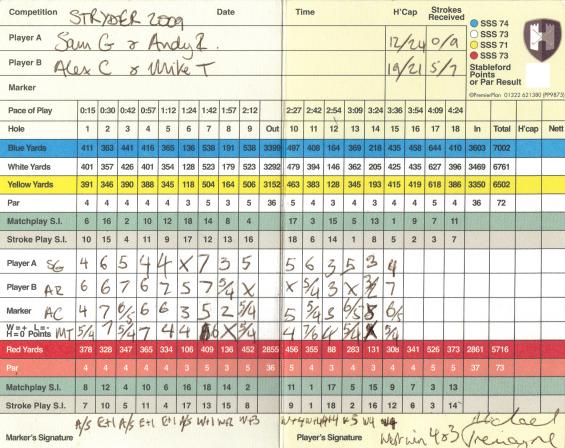 Competition STRYDER 2009 Date Time H'Cap Strokes Received
Player A Sam G & Andy R. 12/24 0/9
Player B Alex C & Mike T 19/21 5/7
Marker
SSS 74
SSS 73
SSS 71
SSS 73
Stableford Points or Par Result
©PremierPlan 01322 621380 (PP9873)
Pace of Play 0:15 0:30 0:42 0:57 1:12 1:24 1:42 1:57 2:12 2:27 2:42 2:54 3:09 3:24 3:36 3:54 4:09 4:24
Hole 1 2 3 4 5 6 7 8 9 Out 10 11 12 13 14 15 16 17 18 In Total H'cap Nett
Blue Yards 411 363 441 416 365 136 538 191 538 3399 497 408 164 369 218 435 458 644 410 3603 7002
White Yards 401 357 426 401 354 128 523 179 523 3292 479 394 146 362 205 425 435 627 396 3469 6761
Yellow Yards 391 346 390 388 345 118 504 164 506 3152 463 383 128 345 193 415 419 618 386 3350 6502
Par 4 4 4 4 4 3 5 3 5 36 5 4 3 4 3 4 4 5 4 36 72
Matchplay S.I. 6 16 2 10 12 18 14 8 4 17 3 15 5 13 1 9 7 11
Stroke Play S.I. 10 15 4 11 9 17 12 13 16 18 6 14 1 8 5 2 3 7
Player A SG 4 6 5 4 4 X 7 3 5 5 6 3 5 3 4
Player B AR 6 6 7 6 2 5 7 5/4 X X 5/4 3 X 3/2 7
Marker AC 4 7 6/5 6 6 3 5 2 5/4 5 5/4 3 6/5 8 6/5
W=+ L=- H=0 Points MT 5/4 7 5/4 7 4 4 6 X 5/4 4 7/6 4 5/4 X 5/4
Red Yards 378 328 347 365 334 106 409 136 452 2855 456 355 88 283 131 308 341 526 373 2861 5716
Par 4 4 4 4 4 3 5 3 5 36 5 4 3 4 3 4 4 5 4 37 73
Matchplay S.I. 8 12 4 10 6 16 18 14 2 11 1 17 5 15 9 7 3 13
Stroke Play S.I. 7 10 5 11 4 17 13 15 8 9 1 18 2 16 12 6 3 14
A/S E+1 A/S E+1 E+1 A/S W+1 W+2 W+3 W+4 W+4 W+4 W+5 W4 W4
Marker's Signature Player's Signature West win 4&3